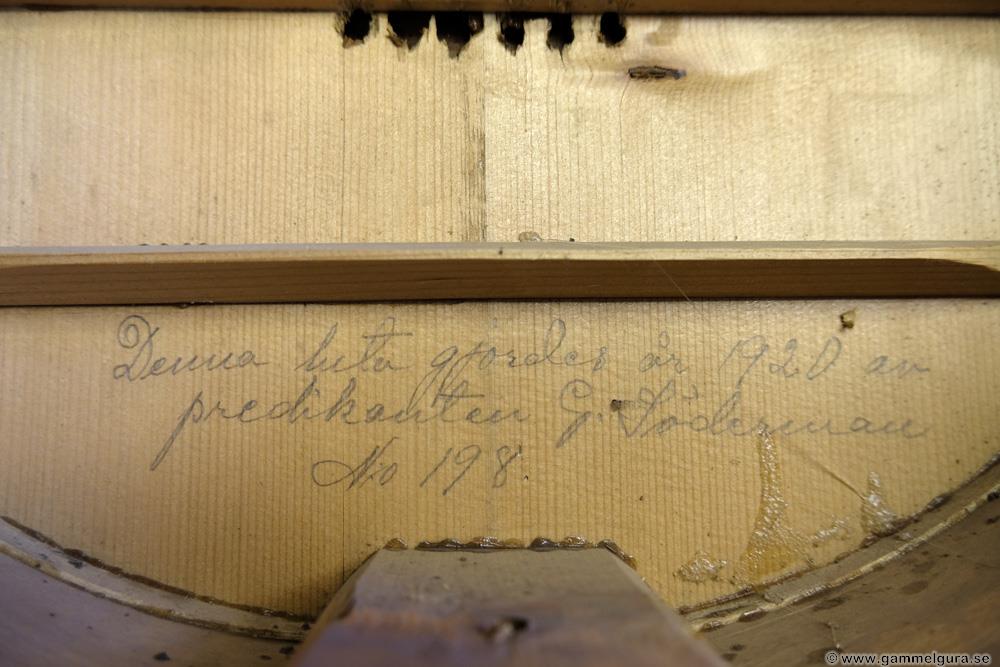 Denna luta gjordes år 1920 av
predikanten G. Söderman
No 198.
© www.gammelgura.se